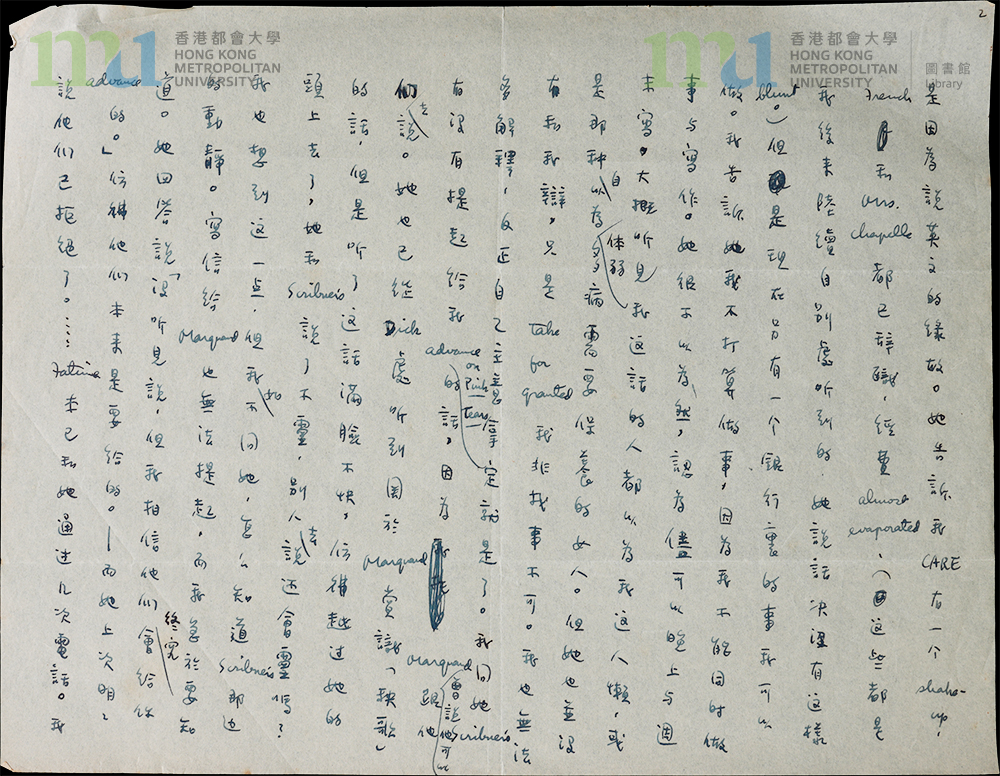 2
是因為說英文的緣故。她告訴我 CARE 有一个 shake-up,
French 和 Mrs. Chapelle 都已辭職,經費 almost evaporated,(这些都是
我後来陸續自別處听到的,她說話決沒有这樣
blunt。)但是現在另有一个銀行裏的事我可以
做。我告訴她我不打算做事,因為我不能同时做
事与寫作。她很不以為然,認為儘可以晚上与週
末寫。大概听見我这話的人都以為我这人懶,或
是那种自以為体弱多病需要保養的女人。但她也並沒
有和我辯,只是 take for granted 我非找事不可。我也無法
多解釋,反正自己主意拿定就是了。我问她 Scribner's
有沒有提起給我 advance on Pink Tears 的話,因為 Marquand 曾說他可以跟他
们去說。她也已從 Dick 處听到関於 Marquand 賞識「秧歌」
的話,但是听了这話滿臉不快,彷彿越过她的
頭上去了,她和 Scribner's 說了不靈,別人去說还會靈嗎?
我也想到这一点,但我如不问她,怎么知道 Scribner's 那边
的動靜。寫信給 Marquand 也無法提起,而我急於要知
道。她回答說「沒听見說,但我相信他们終究會給你
advance 的。」彷彿他们本来是要給的。—而她上次明明
說他们已拒絕了。……Fatima 来已和她通过几次電話。我
香港都會大學
HONG KONG
METROPOLITAN
UNIVERSITY
香港都會大學
HONG KONG
METROPOLITAN
UNIVERSITY
圖書館
Library